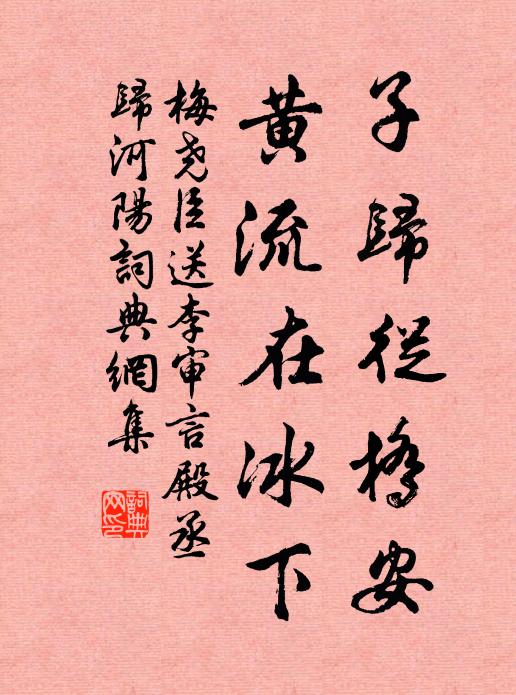 子歸從橋安
黃流在冰下
梅堯臣送李审言殿丞
歸河陽詞典網集
詞典网印